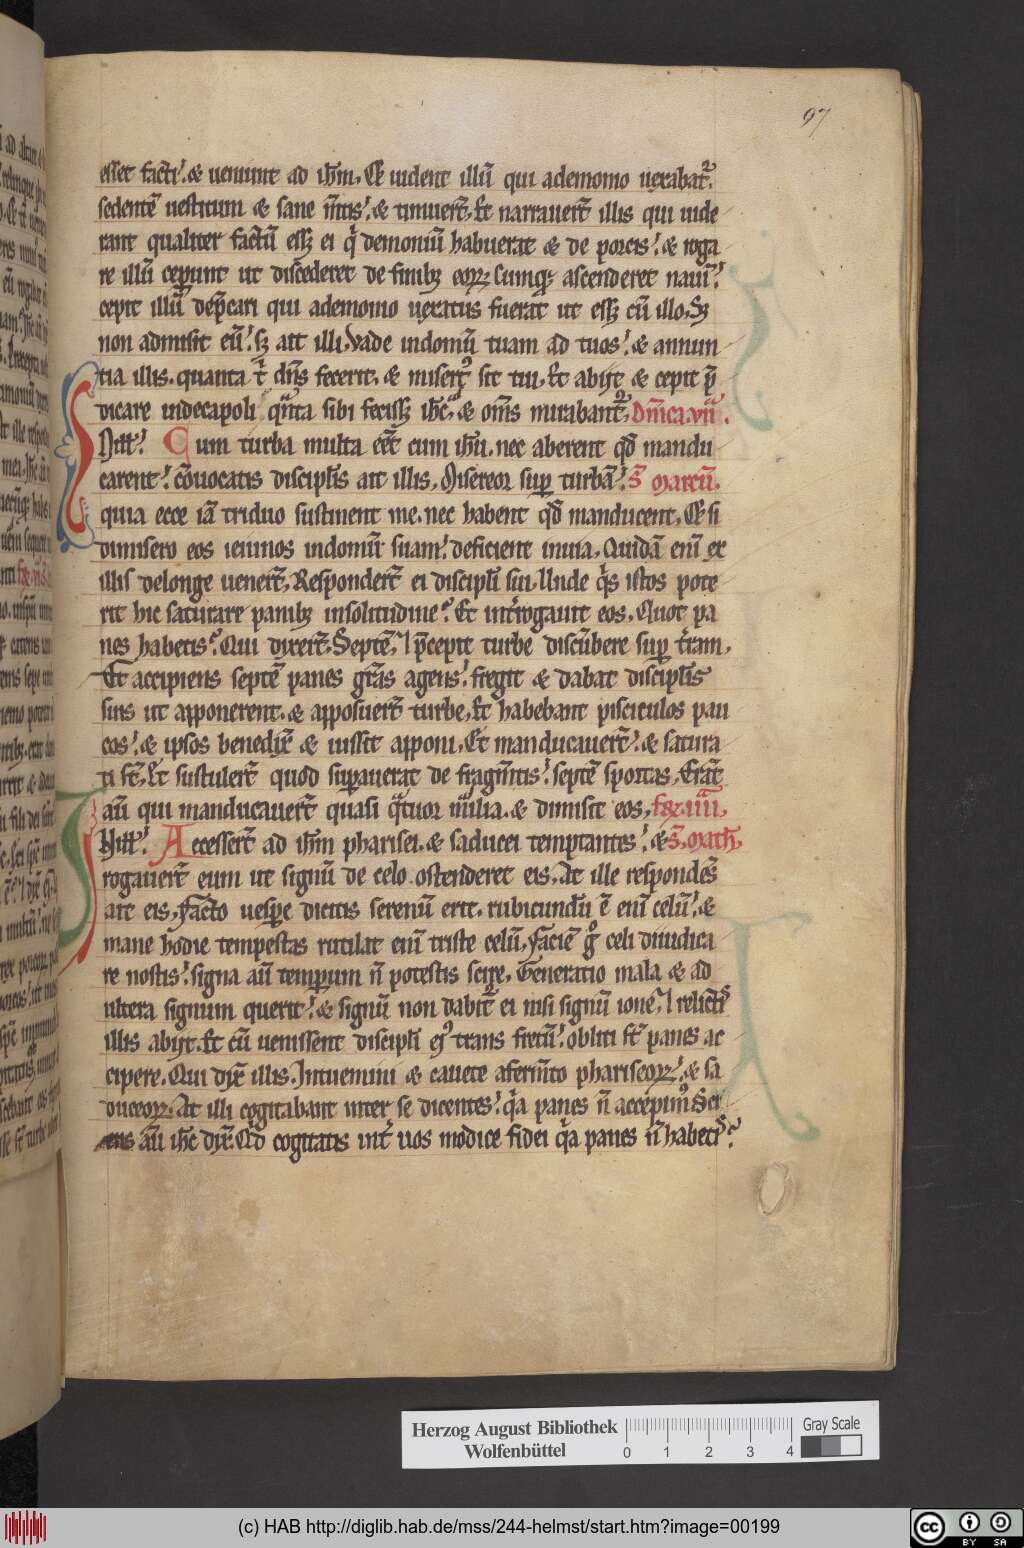 97
esset facti. & ueniunt ad ih̄m. Et uident illū qui ademonio uexabat᷑.
sedentē uestitum & sane m̄tis. & timuer̄t. Et narrauer̄t illis qui uide
rant qualiter factū ess& ei q̇ demoniū habuerat & de porcis. & roga
re illū ceperunt ut discederet de finibꝫ eoꝝ. Cumqꝫ ascenderet nauī.
cepit illū dep̄cari qui ademonio uexatus fuerat ut essꝫ cū illo. Sꝫ
non admisit eū. sꝫ ait illi. Vade indomū tuam ad tuos. & annun
tia illis. quanta t̄ dn̄s fecerit. & misert᷒ sit tui. Et abijt & cepit p̄
dicare indecapoli qn̄ta sibi fecissꝫ ih̄c. & om̄s mirabant᷑. Dn̄ica. vii.
In ill̄. Cum turba multa eēt cum ih̄u. nec aberent qd̄ mandu
carent. cōuocatis discipl̄is ait illis. Misereor suꝑ turbā. S. Marcū.
quia ecce iā triduo sustinent me. nec habent qd̄ manducent. Et si
dimisero eos ieiunos indomū suam. deficient inuia. Quidā eni ex
illis delonge uener̄t. Responder̄t ei discipl̄i sui. Unde q̇s istos pote
rit hic saturare panibꝫ insolitudine. Et int̄rogauit eos. Quot pa
nes habetis. Qui dixer̄t. Septē. Et p̄cepit turbe discūbere suꝑ t̄ram.
Et accipiens septē panes grās agens. fregit & dabat discipl̄is
suis ut apponerent. & apposuer̄t turbe. Et habebant pisciculos pau
cos. & ipsos benedix̄ & iussit apponi. Et manducauer̄t. & satura
ti st̄. Et sustuler̄t quod suꝑauerat de fragm̄tis. septē sportas. Erāt
aū qui manducauer̄t quasi q̄tuor milia. & dimisit eos. f̄. iiii.
In ill̄. Accesser̄t ad ih̄m pharisei. & saducei temptantes. & S. Math̄.
rogauer̄t eum ut signū de celo ostenderet eis. At ille respondēs
ait eis. Facto uesꝑe dicitis serenū erit. rubicundū ē eni celū. &
mane hodie tempestas rutilat eni triste celū. Faciē g̊ celi diiudica
re nostis. signa aū temporum n̄ potestis scire. Generatio mala & ad
ultera signum querit. & signū non dabit᷑ ei nisi signū ione. Et relictis
illis abijt. Et cū uenissent discipl̄i ei᷒ trans fretū. obliti st̄ panes ac
cipere. Qui dix̄ illis. Intuemini & cauete aferm̄to phariseoꝝ. & sa
duceoꝝ. At illi cogitabant inter se dicentes. q̇a panes n̄ accepim᷒. Sci
ens aū ih̄c dix̄. Qd̄ cogitatis int̄ uos modice fidei q̇a panes n̄ habetis?
Herzog August Bibliothek
Wolfenbüttel
0 1 2 3 4
Gray Scale
(c) HAB http://diglib.hab.de/mss/244-helmst/start.htm?image=00199
cc BY SA